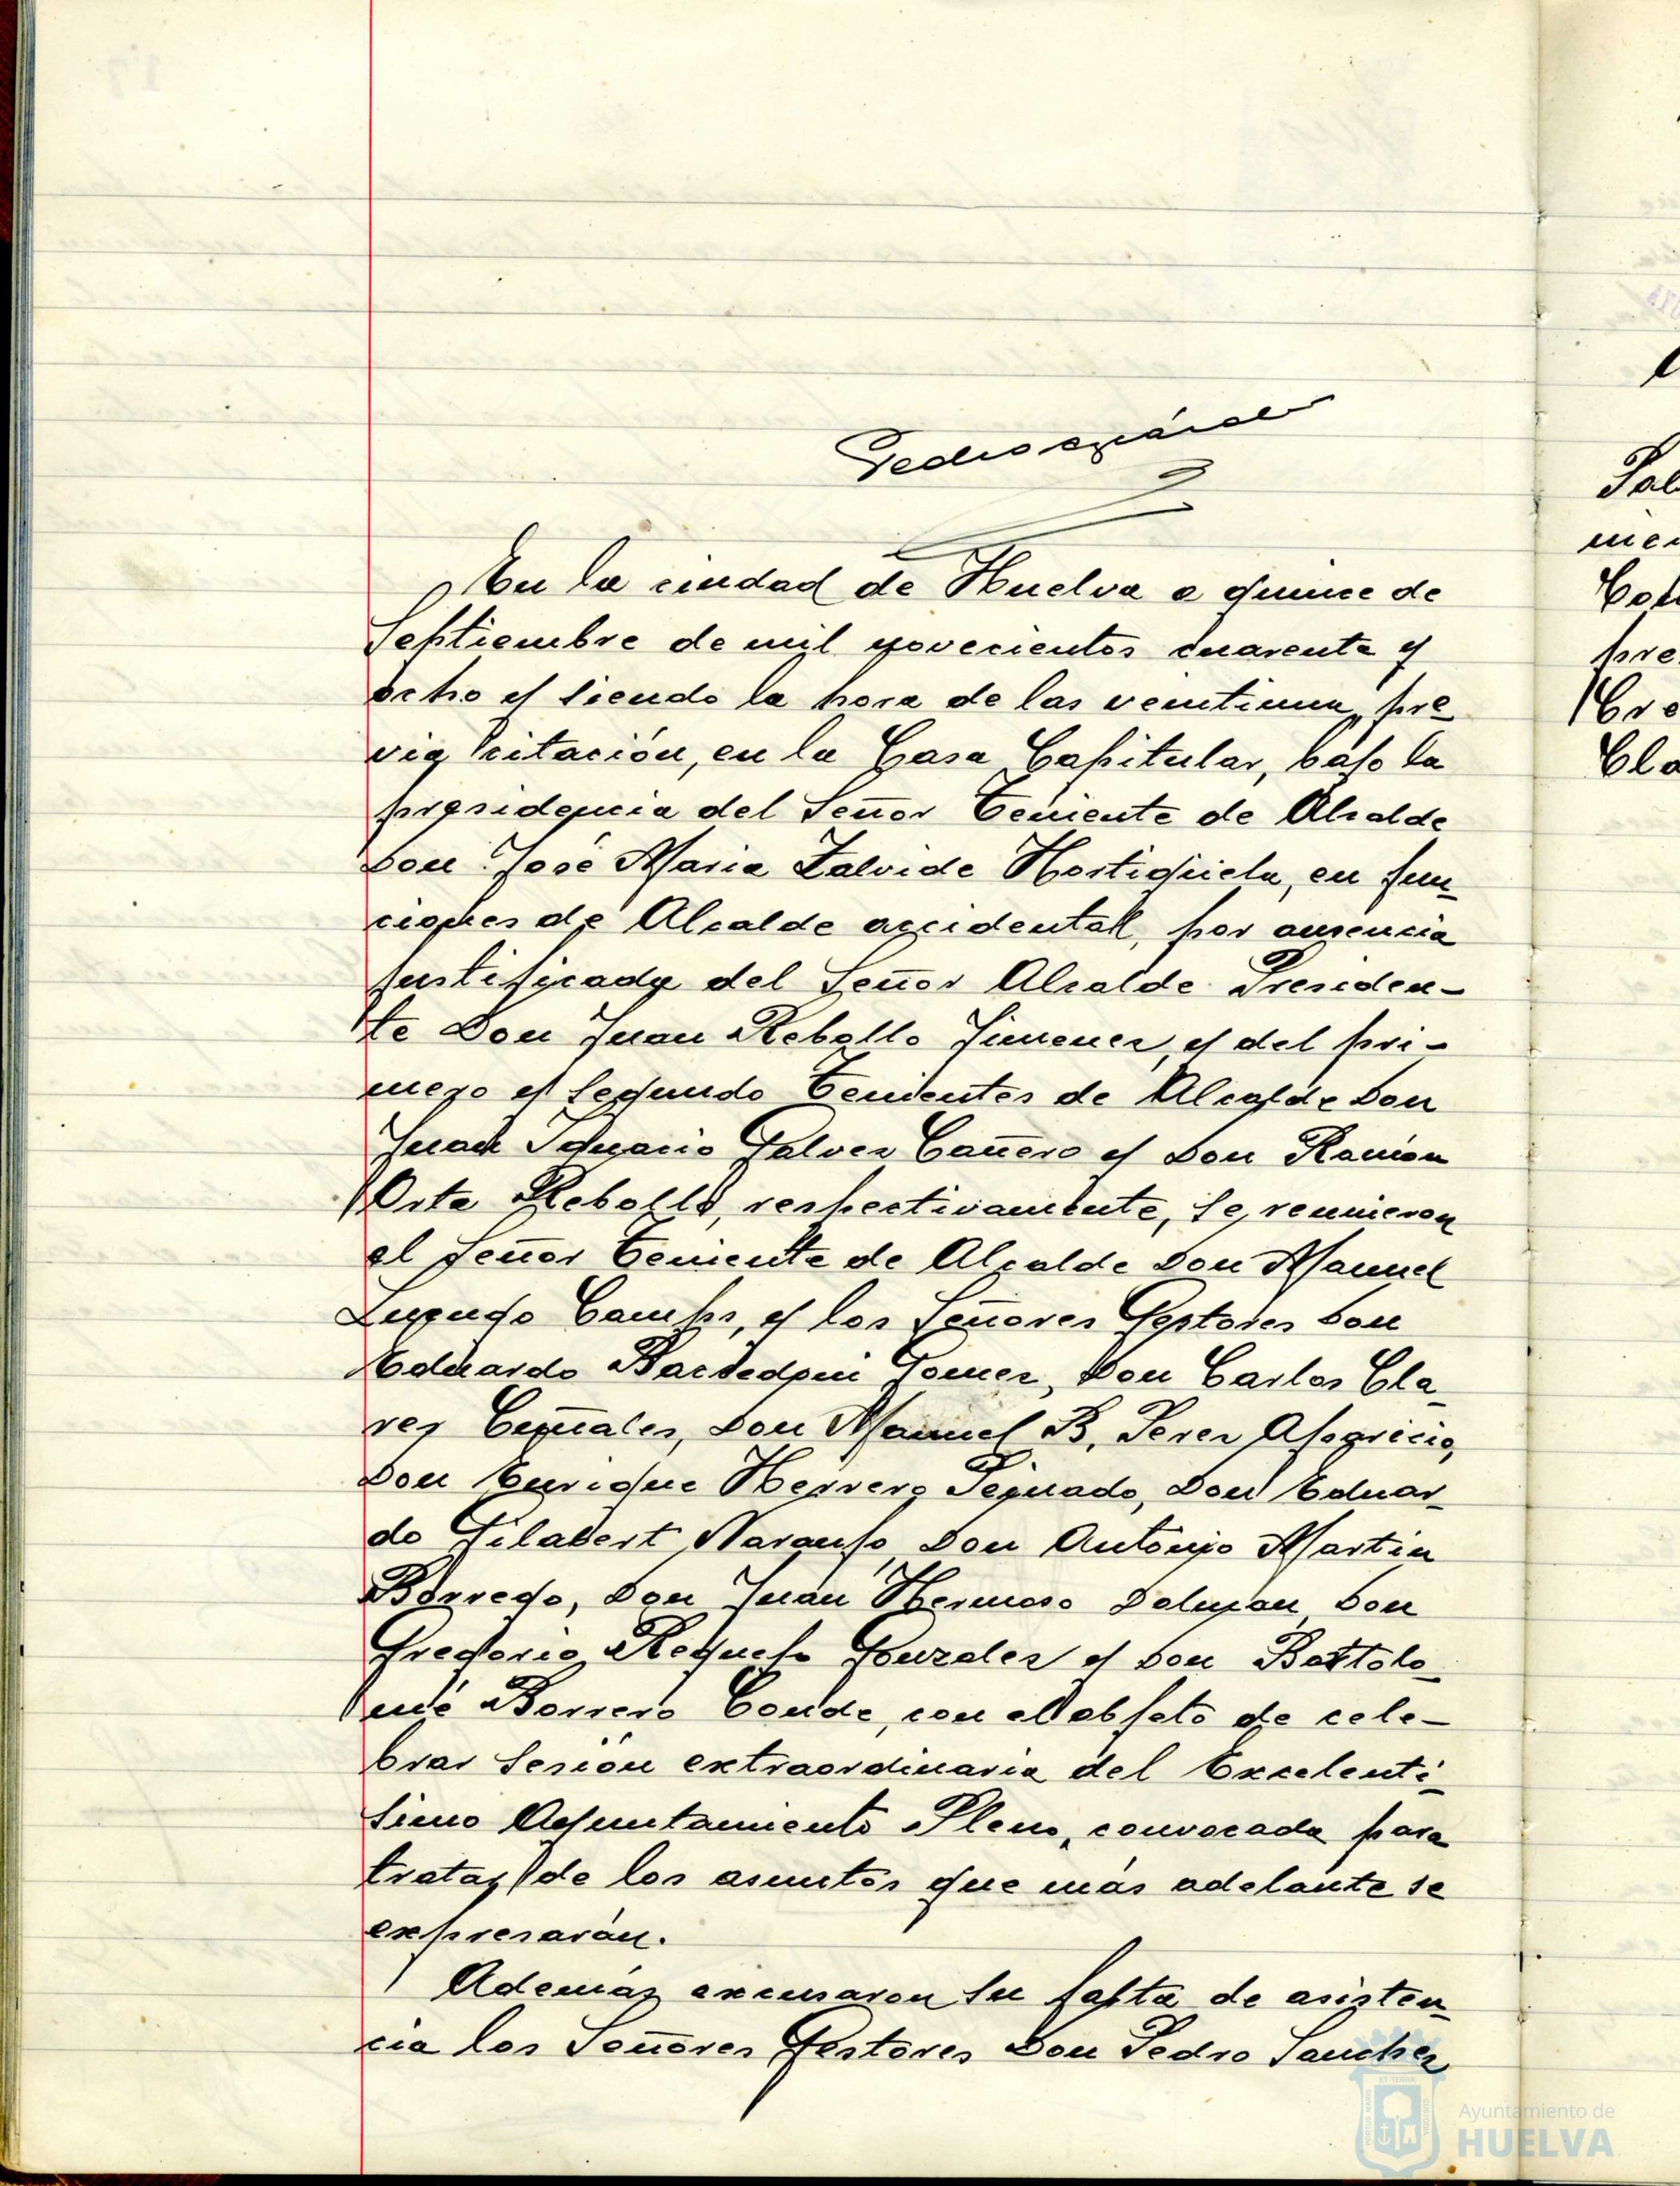 Pedro
En la ciudad de Huelva a quince de
Septiembre de mil novecientos cuarenta y
ocho y siendo la hora de las veintiuna, pre
via citación, en la Casa Capitular, bajo la
presidencia del Señor Teniente de Alcalde
Don José Maria Zalvide Hortigüela, en fun
ciones de Alcalde accidental, por ausencia
justificada del Señor Alcalde Presiden-
te Don Juan Rebollo Jimenez, y del pri-
mero y segundo Tenientes de Alcalde Don
Juan Ignacio Galvez Cañero y Don Ramón
Orta Rebollo, respectivamente, se reunieron
el Señor Teniente de Alcalde Don Manuel
Camps, y los Señores Gestores Don
Eduardo Gomez, Don Carlos Cla
res Don Manuel B. Perez
Don Enrique Herrera Don Eduar
do Gilabert Naranjo, Don Antonio Martin
Borrego, Don Juan Hermoso Don
Gregorio Requeto Gonzalez y Don Bartolo
mé Borrero Conde, con el objeto de cele-
brar sesión extraordinaria del Excelentí
simo Ayuntamiento Pleno, convocada para
tratar de los asuntos que más adelante se
expresarán.
Además excusaron su falta de asisten
cia los Señores Gestores Don Pedro Sanchez
Ayuntamiento de
HUELVA